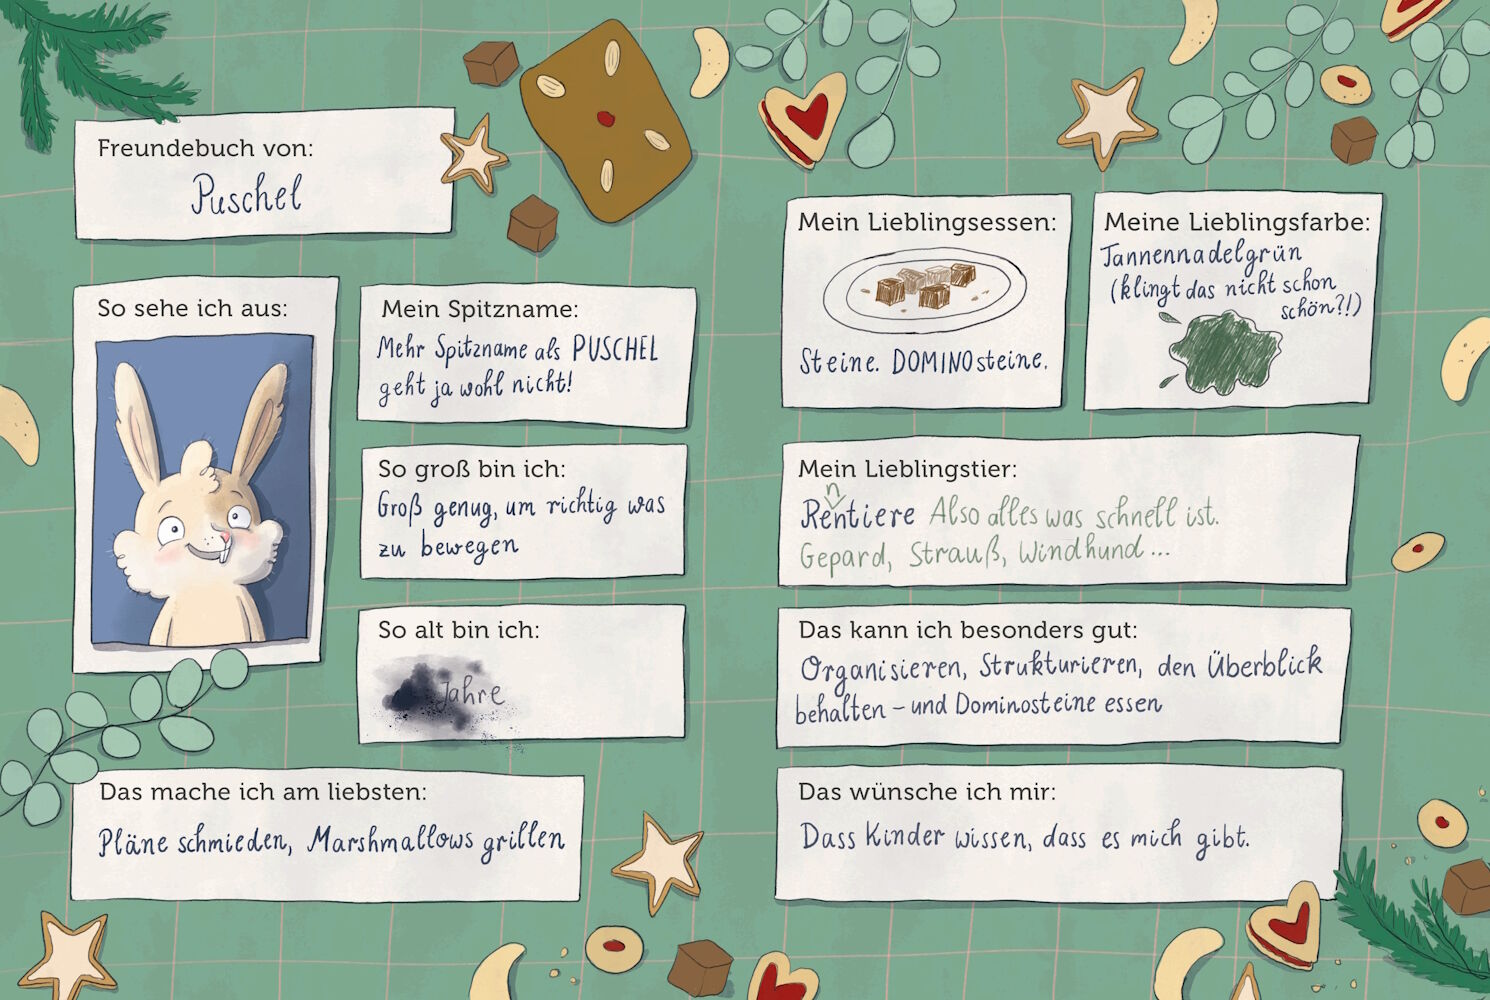 Freundebuch von:
Puschel
So sehe ich aus:
Mein Spitzname:
Mehr Spitzname als PUSCHEL
geht ja wohl nicht!
So groß bin ich:
Groß genug, um richtig was
zu bewegen
So alt bin ich:
Jahre
Das mache ich am liebsten:
Pläne schmieden, Marshmallows grillen
Mein Lieblingsessen:
Steine. DOMINOsteine.
Meine Lieblingsfarbe:
Tannennadelgrün
(klingt das nicht schon
schön?!)
Mein Lieblingstier:
n
Rentiere Also alles was schnell ist.
Gepard, Strauß, Windhund...
Das kann ich besonders gut:
Organisieren, Strukturieren, den Überblick
behalten – und Dominosteine essen
Das wünsche ich mir:
Dass Kinder wissen, dass es mich gibt.